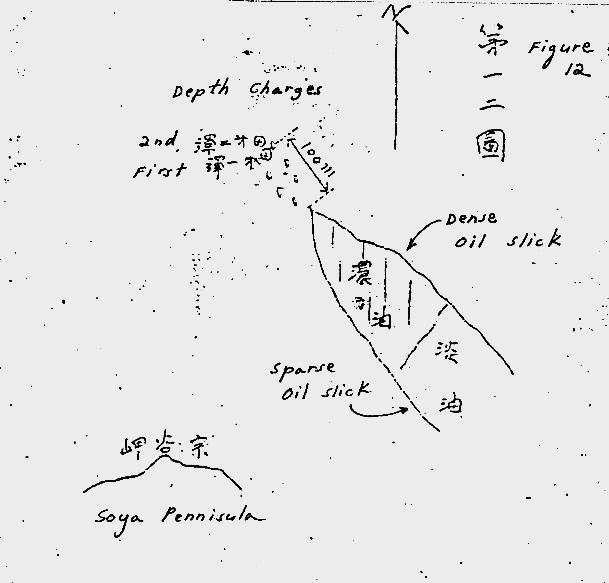 N
第一二圖
Figure
12
Depth Charges
2nd. 彈二
First 彈一
100m
Dense
Oil slick
濃
油
淡油
Sparse
Oil slick
岬谷宗
Soya Pennisula